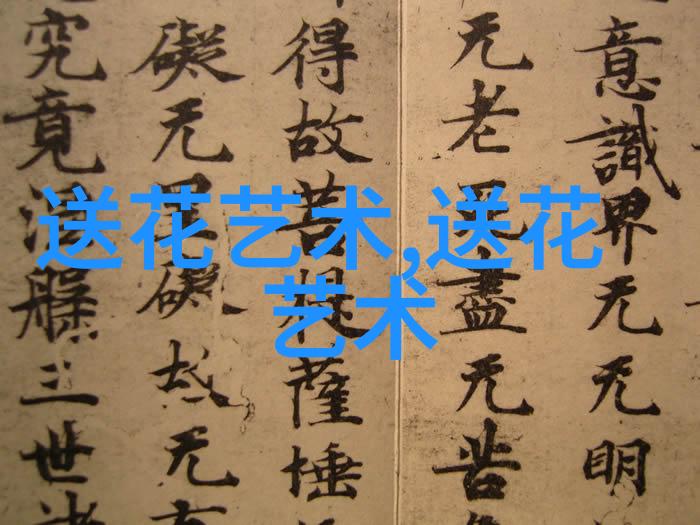 送花艺术,送花
艺术
意識界无无明
无老死盡无苦
得故菩提薩埵
礙无罣礙故无
究竟涅槃三世諸